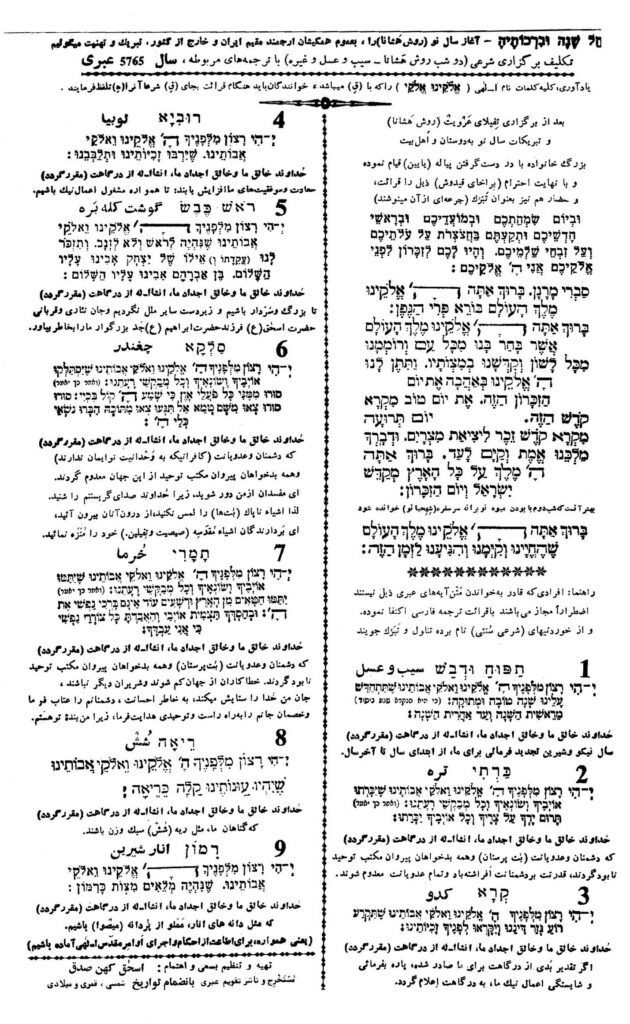 תל שנה וברכותיה – آغاز سال نو (روش هَشانا) را، بعموم همکیشان ارجمند مقیم ایران و خارج از کشور، تبریك و تهنیت میگوئیم
تکلیف برگزاری شرعی (دو شب روش هَشانا – سیب و عسل و غیره) با ترجمه‌های مربوطه، سال 5765 عبری
یادآوری، کلیه کلمات نام الهی (אלקינו אלקי) را که با (ق) میباشد، خوانندگان باید هنگام قرائت بجای (ق) شرعاً آنرا (ه) تلفظ فرمایند.
بعد از برگزاری تِفیلای عَرْویت (روش هَشانا)
و تبریکات سال نو به‌دوستان و اهل‌بیت
بزرگ خانواده با در دست‌گرفتن پیاله (یایین) قیام نموده
و با نهایت احترام (براخای قیدوش) ذیل را قرائت،
و حضار هم نیز بعنوان تَبَرُّك (جرعه‌ای از آن مینوشند)
וביום שמחתכם ובמועדיכם ובראשי
חדשיכם ותקעתם בחצצרת על עלתיכם
ועל זבחי שלמיכם. והיו לכם לזכרון לפני
אלקיכם אני ה' אלקיכם:
סברי מרנן. ברוך אתה ה' אלקינו
מלך העולם בורא פרי הגפן:
ברוך אתה ה' אלקינו מלך העולם
אשר בחר בנו מכל עם ורוממנו
מכל לשון וקדשנו במצותיו. ותתן לנו
ה' אלקינו באהבה את יום
הזכרון הזה. את יום טוב מקרא
קדש הזה. יום תרועה
מקרא קדש זכר ליציאת מצרים. ודברך
מלכנו אמת וקים לעד. ברוך אתה
ה' מלך על כל הארץ מקדש
ישראל ויום הזכרון:
ברוך אתה ה' אלקינו מלך העולם
שהחיינו וקימנו והגיענו לזמן הזה:
راهنما: افرادی که قادر به‌خواندن متن‌آیه‌های عبری ذیل نیستند
اضطراراً مجاز می‌باشند باقرائت ترجمه فارسی اکتفا نموده،
و از خوردنیهای (شرعی سُنتی) نام برده تناول و تَبَرُّك جویند
1 תפוח ודבש سیب و عسل
י-הי רצון מלפניך ה' אלקינו ואלקי אבותינו שתתחדש
עלינו שנה טובה ומתוקה:
מראשית השנה ועד אחרית השנה:
خداوند خالق ما وخالق اجداد ما، انشااـله از درگاهت (مقررگردد)
سال نیکو وشیرین تجدید فرمائی برای ما، از ابتدای سال تا آخرسال.
2 כרתי تره
י-הי רצון מלפניך ה' אלקינו ואלקי אבותינו שיכרתו
אויביך ושונאיך וכל מבקשי רעתנו:
תרום ידך על צריך וכל אויביך יכרתו:
خداوند خالق ما وخالق اجداد ما، انشااـله از درگاهت (مقررگردد)
که دشمنان وعدویانت (بُت پرستان) وهمه بدخواهان پیروان مکتب توحید
نابودگردند، قدرتت بردشمنانت افراشته‌باد وتمام عدویانت معدوم شوند.
3 קרא کدو
י-הי רצון מלפניך ה' אלקינו ואלקי אבותינו שתקרע
רוע גזר דינינו ויקראו לפניך זכיותינו:
خداوند خالق ما وخالق اجداد ما، انشااـله از درگاهت (مقررگردد)
اگر تقدیر بَدی از درگاهت برای ما صادر شده، پاره بفرمائی
و شایستگی اعمال نیك ما، به درگاهت اِعلام گردد.
4 רוביא لوبیا
י-הי רצון מלפניך ה' אלקינו ואלקי
אבותינו. שירבו זכיותינו ותלבבנו:
خداوند خالق ما وخالق اجداد ما، انشااـله از درگاهت (مقررگردد)
سعادت وموفقیت‌های ماافزایش یابند؛ تا همواره مشغول اعمال‌نیك باشیم.
5 ראש כבש گوشت کله بَره
י-הי רצון מלפניך ה' אלקינו ואלקי
אבותינו שנהיה לראש ולא לזנב. ותזכר
לנו (עקדתו ן) אילו של יצחק אבינו עליו
השלום. בן אברהם אבינו עליו השלום:
خداوند خالق ما وخالق اجداد ما، انشااـله از درگاهت (مقررگردد)
تا بزرگ وسَرْدار باشیم و زیردست سایر ملل نگردیم وجان نثاری وقربانی
حضرت اسحق(ع) فرزندحضرت ابراهیم (ع)جَد بزرگوار مارابخاطر بیاور.
6 סלקא چغندر
י-הי רצון מלפניך ה' אלקינו ואלקי אבותינו שיסתלקו
אויביך ושונאיך וכל מבקשי רעתנו:
סורו ממני כל פעלי און כי שמע ה' קול בכיי: סורו
סורו צאו משם טמא אל תגעו צאו מתוכה הברו נשאי
כלי ה':
خداوند خالق ما وخالق اجداد ما، انشااـله از درگاهت (مقررگردد)
که دشمنان وعدویانت (کافرانیکه به وَحدانیت توایمان ندارند)
وهمه بدخواهان پیروان مکتب توحید از این جهان معدوم گردند.
ای مفسدان ازمن دور شوید، زیرا خداوند صدای‌گریستنم را شنید.
لذا اشیاء ناپاك (بُت‌ها) را لمس نکنید،از درون‌آنان بیرون آئید،
ای بَردارندگان اشیاء مقدسه (صیصیت وتِفیلین)، خود را مُنَزَّه نمائید.
7 תמרי خُرما
י-הי רצון מלפניך ה' אלקינו ואלקי אבותינו שיתמו
אויביך ושונאיך וכל מבקשי רעתנו:
יתמו חטאים מן הארץ ורשעים עוד אינם ברכי נפשי את
ה': ובחסדך תצמית אויבי והאבדת כל צוררי נפשי
כי אני עבדך:
خداوند خالق ما وخالق اجداد ما، انشااـله از درگاهت (مقررگردد)
که دشمنان وعدویانت (بُت‌پرستان) وهمه بدخواهان پیروان مکتب توحید
نابودگردند. خطاکاران از جهان‌کم شوند وشریران دیگر نباشند،
جان من خدا را ستایش میکند، به خاطر احسانت، دشمنانم را عتاب فَو ما
وخصمان جانم رابه‌راه راست وتوحیدی هدایت‌فرما، زیرا من‌بندهٔ توهستم.
8 ריאה شُش
י-הי רצון מלפניך ה' אלקינו ואלקי אבותינו
שיהיו עונותינו קלה כריאה:
خداوند خالق ما وخالق اجداد ما، انشااـله از درگاهت (مقررگردد)
که‌گناهان ما، مثل ریه (شُش) سبك وزن باشند.
9 רמון انار شیرین
י-הי רצון מלפניך ה' אלקינו ואלקי
אבותינו. שנהיה מלאים מצות כרמון:
خداوند خالق ما وخالق اجداد ما، انشااـله از درگاهت (مقررگردد)
که مثل دانه های انار، مَملو از پُردانه (میصوا) باشیم.
(یعنی همواره، برای‌اطاعت‌ازاحکام‌واجرای اَوامرمقدس‌الهی‌آماده باشیم)
تهیه و تنظیم بسعی و اهتمام: اسحٰق کهن صدق
مُسْتَخرِج و ناشر تقویم عبری بانضمام تواریخ شمسی، قمری و میلادی